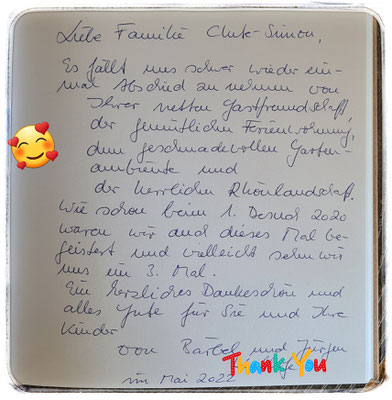 Liebe Familie Chut-Simon,
Es fällt uns schwer wieder ein-
mal Abschied zu nehmen von
Ihrer netten Gastfreundschaft,
der gemütlichen Ferienwohnung,
dem geschmackvollen Garten-
ambiente und
der herrlichen Rhönlandschaft.
Wie schon beim 1. Besuch 2020
waren wir auch dieses Mal be-
geistert und vielleicht sehn wir
uns ein 3. Mal.
Ein herzliches Dankeschön und
alles Gute für Sie und Ihre
Kinder
von Bärbel und Jürgen
Thank You
im Mai 2022